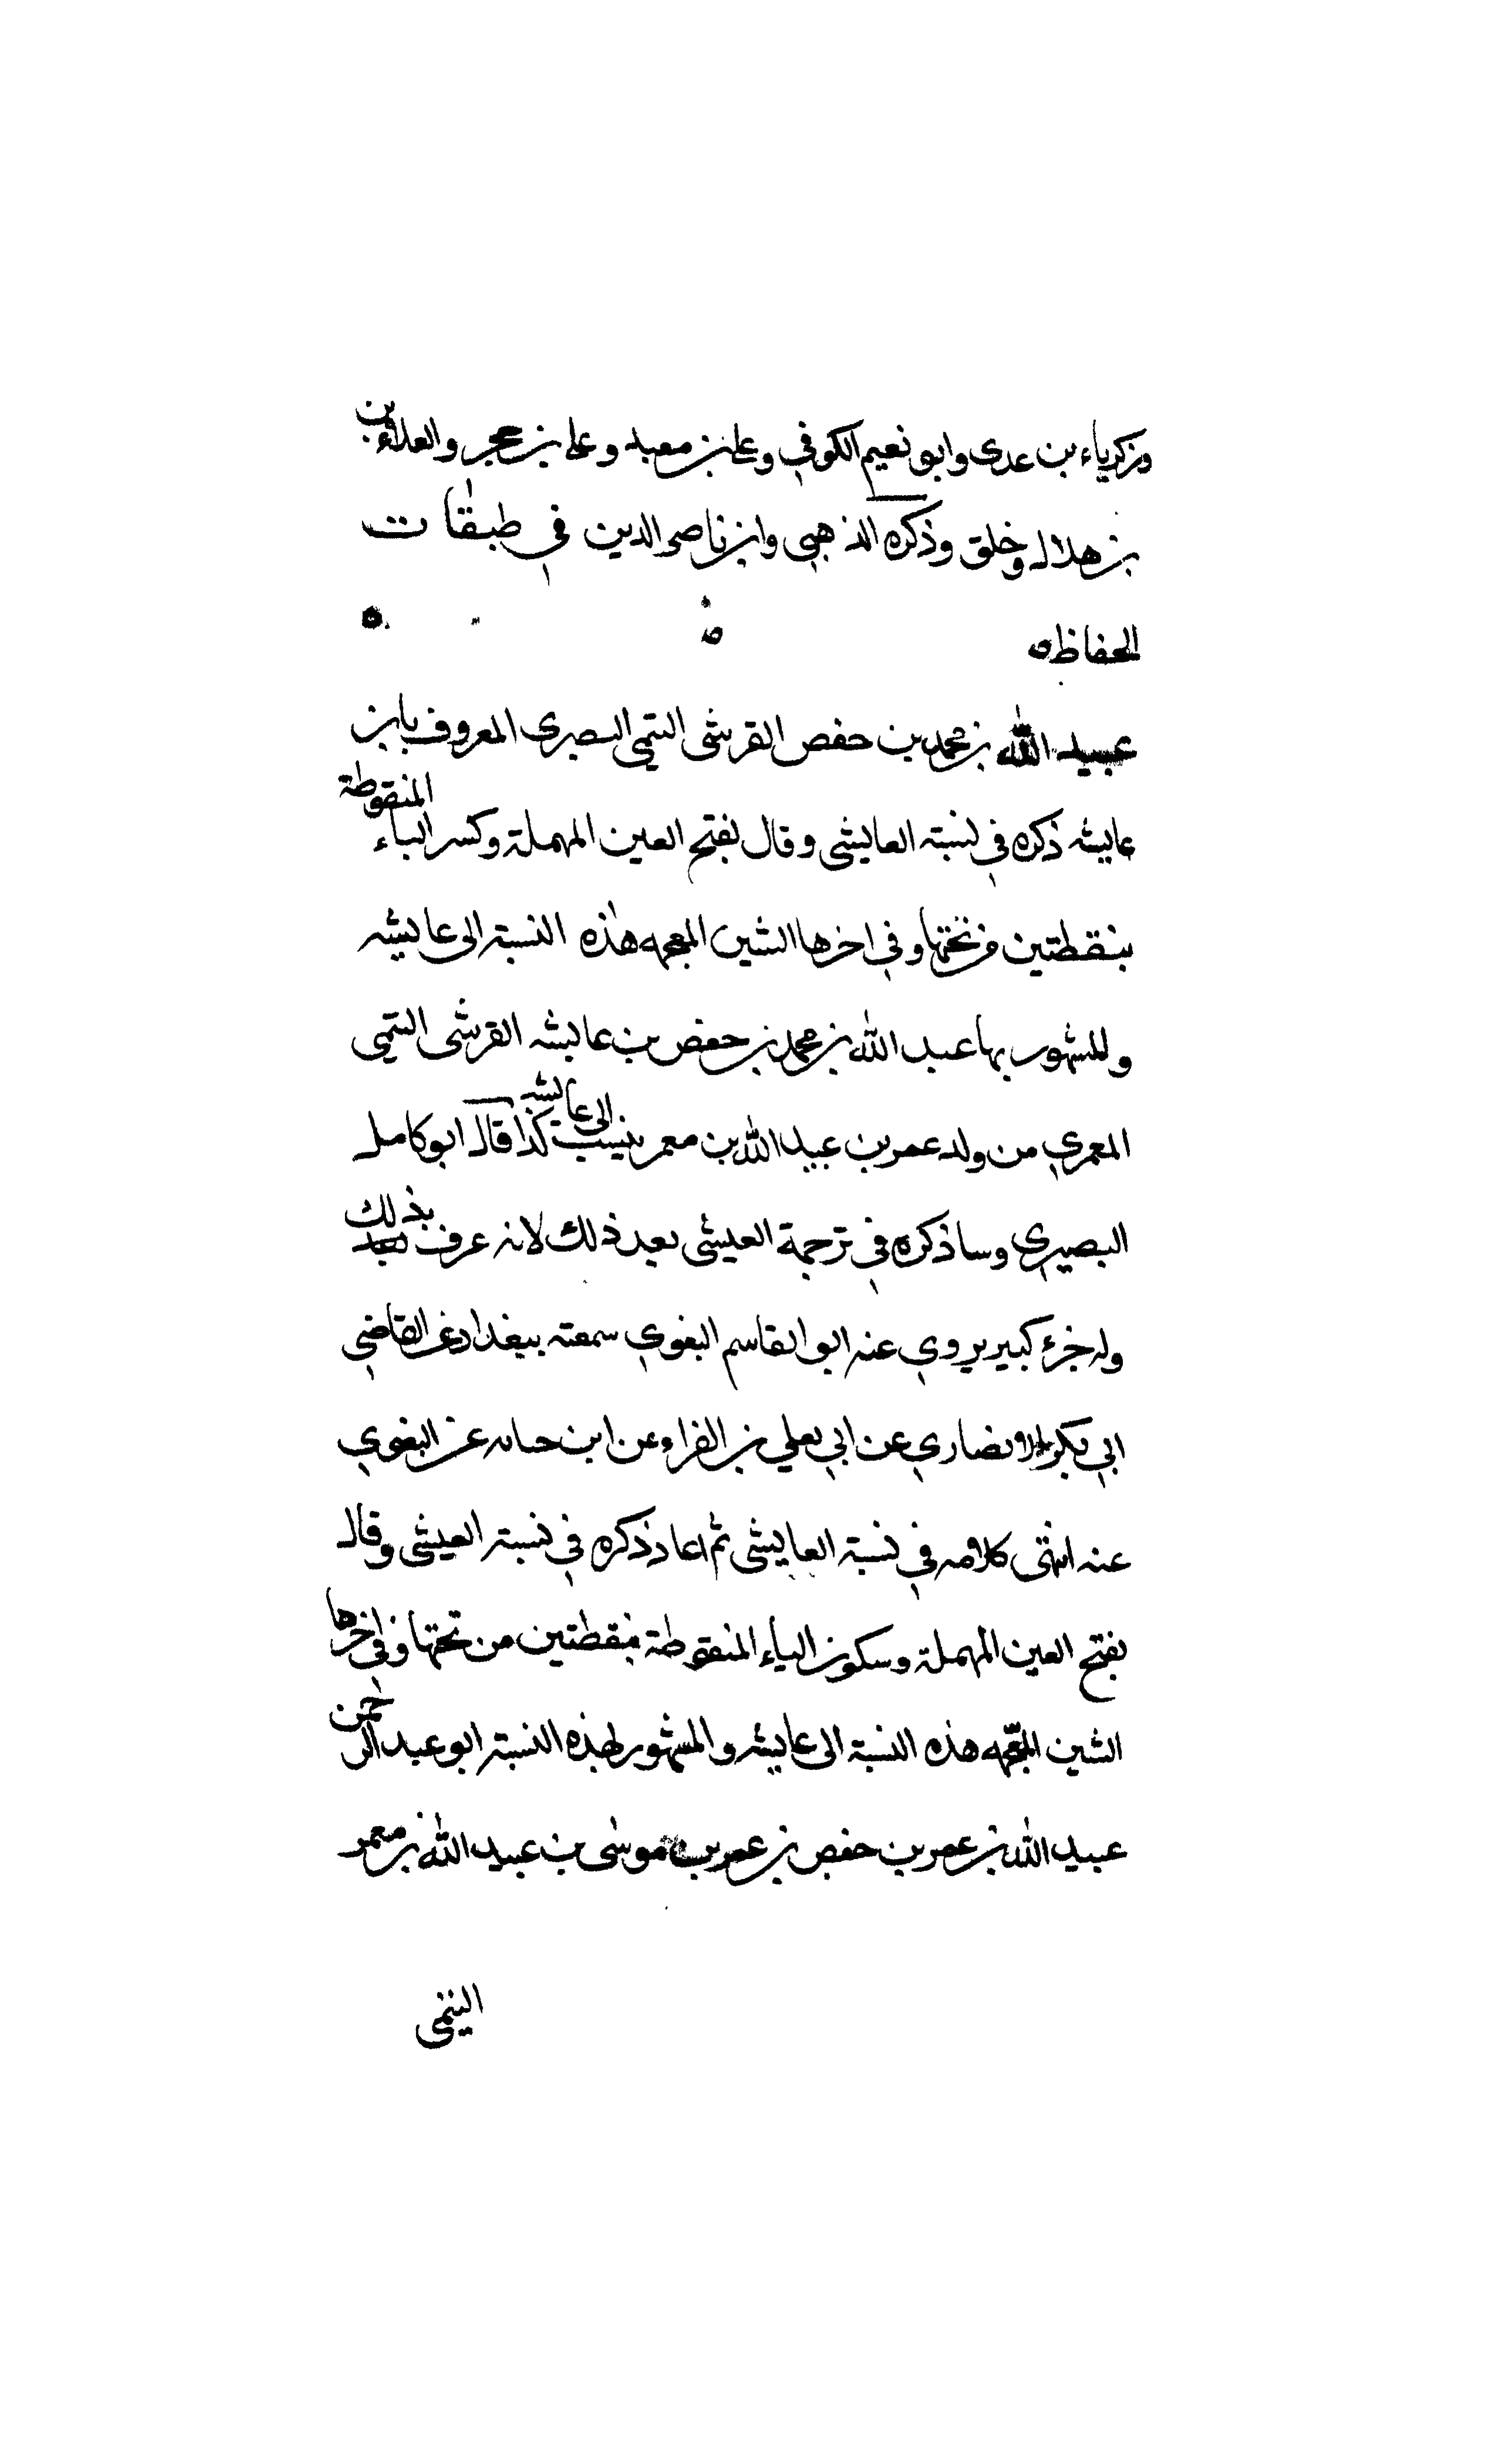 وزكرياء بن عدى وابو نعيم الكوفي وعلى بن معبد وعلى بن حجر والعلاء بن
بن هلال وخلق وذكره الذهبي وابن ناصر الدين في طبقات
الحفاظ ه
عبيد الله بن محمد بن حفص القرشى التيمي البصرى المعروف بابن
عايشه ذكره في نسبة العايشى وقال بفتح العين المهملة وكسر الياء المنقوطة
بنقطتين من تحتها وفي اخرها الشين المعجمه هذه النسبة الى عايشه
والمشهور بها عبيد الله بن محمد بن حفص بن عايشه القرشى التيمي
المعمري من ولد عمر بن عبيد الله بن معمر ينسب الى عايشه كذا قال ابو كامل
البصيري وساذكره في ترجمة العيشى بعد ذلك لانه عرف بذلك
وله جزء كبير يروي عنه ابو القاسم البغوي سمعته ببغداد عن القاضي
ابي بكر الانصاري عن ابي يعلي بن الفراء عن ابن حبابه عن البغوي
عنه انتهى كلامه في نسبة العايشى ثم اعاد ذكره في نسبة العيشى وقال
بفتح العين المهملة وسكون الياء المنقوطة بنقطتين من تحتها وفي اخرها
الشين المعجمه هذه النسبة الى عايشه والمشهور بهذه النسبة ابو عبد الرحمن
عبيد الله بن عمر بن حفص بن عمر بن موسى بن عبيد الله بن معمر
التيمى